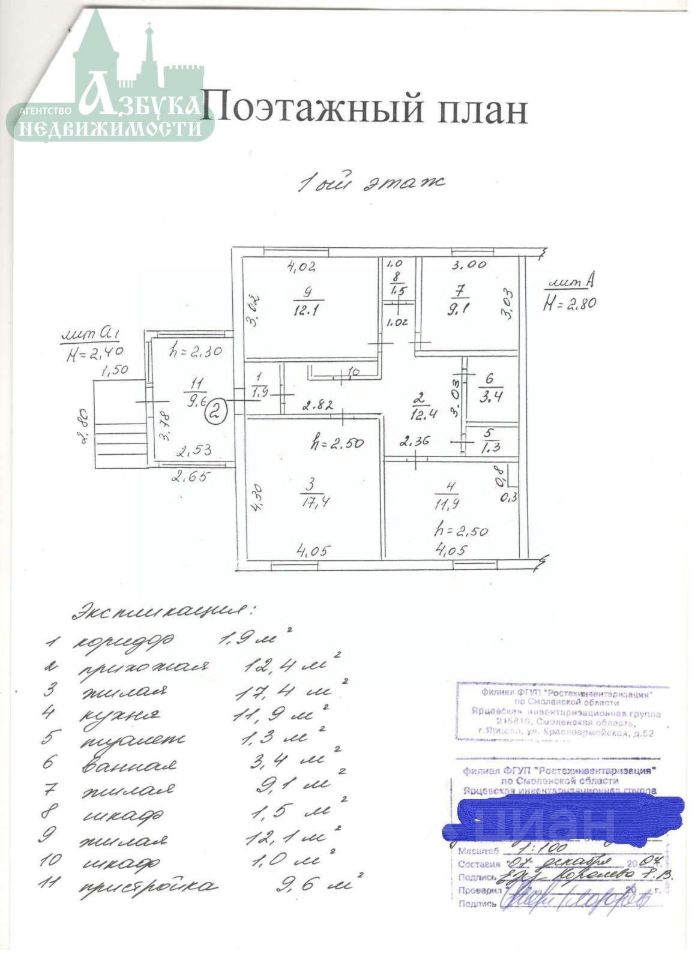 АГЕНТСТВО
АЗБУКА
НЕДВИЖИМОСТИ
Поэтажный план
1ый этаж
4,02
1,0
3.00
9
12.1
3,02
8
1.5
7
9.1
3,03
лит А
H=2.80
1.02
лит а1
H=2,40
1,50
h=2.30
11
9.6
2
3,78
2,80
2.53
2.65
1
1.9
10
2.82
2
12.4
3.03
6
3.4
5
1.3
h=2.50
2.36
3
17,4
4,30
4.05
4
11,9
0,8
0,3
h=2,50
4.05
Экспликация:
1 коридор 1,9 м²
2 прихожая 12,4 м²
3 жилая 17,4 м²
4 кухня 11,9 м²
5 туалет 1,3 м²
6 ванная 3,4 м²
7 жилая 9,1 м²
8 шкаф 1,5 м²
9 жилая 12,1 м²
10 шкаф 1,0 м²
11 пристройка 9,6 м²
филиал ФГУП "Ростехинвентаризация"
по Смоленской области
Ярцевская инвентаризационная группа
215810, Смоленская область,
г.Ярцево, ул. Красноармейская, д.52
филиал ФГУП "Ростехинвентаризация"
по Смоленской области
Ярцевская инвентаризационная группа
циан
Масштаб 1:100
Составил 07 декабря 2007г.
Подпись Королева Г.В.
Проверил 20 г.
Подпись